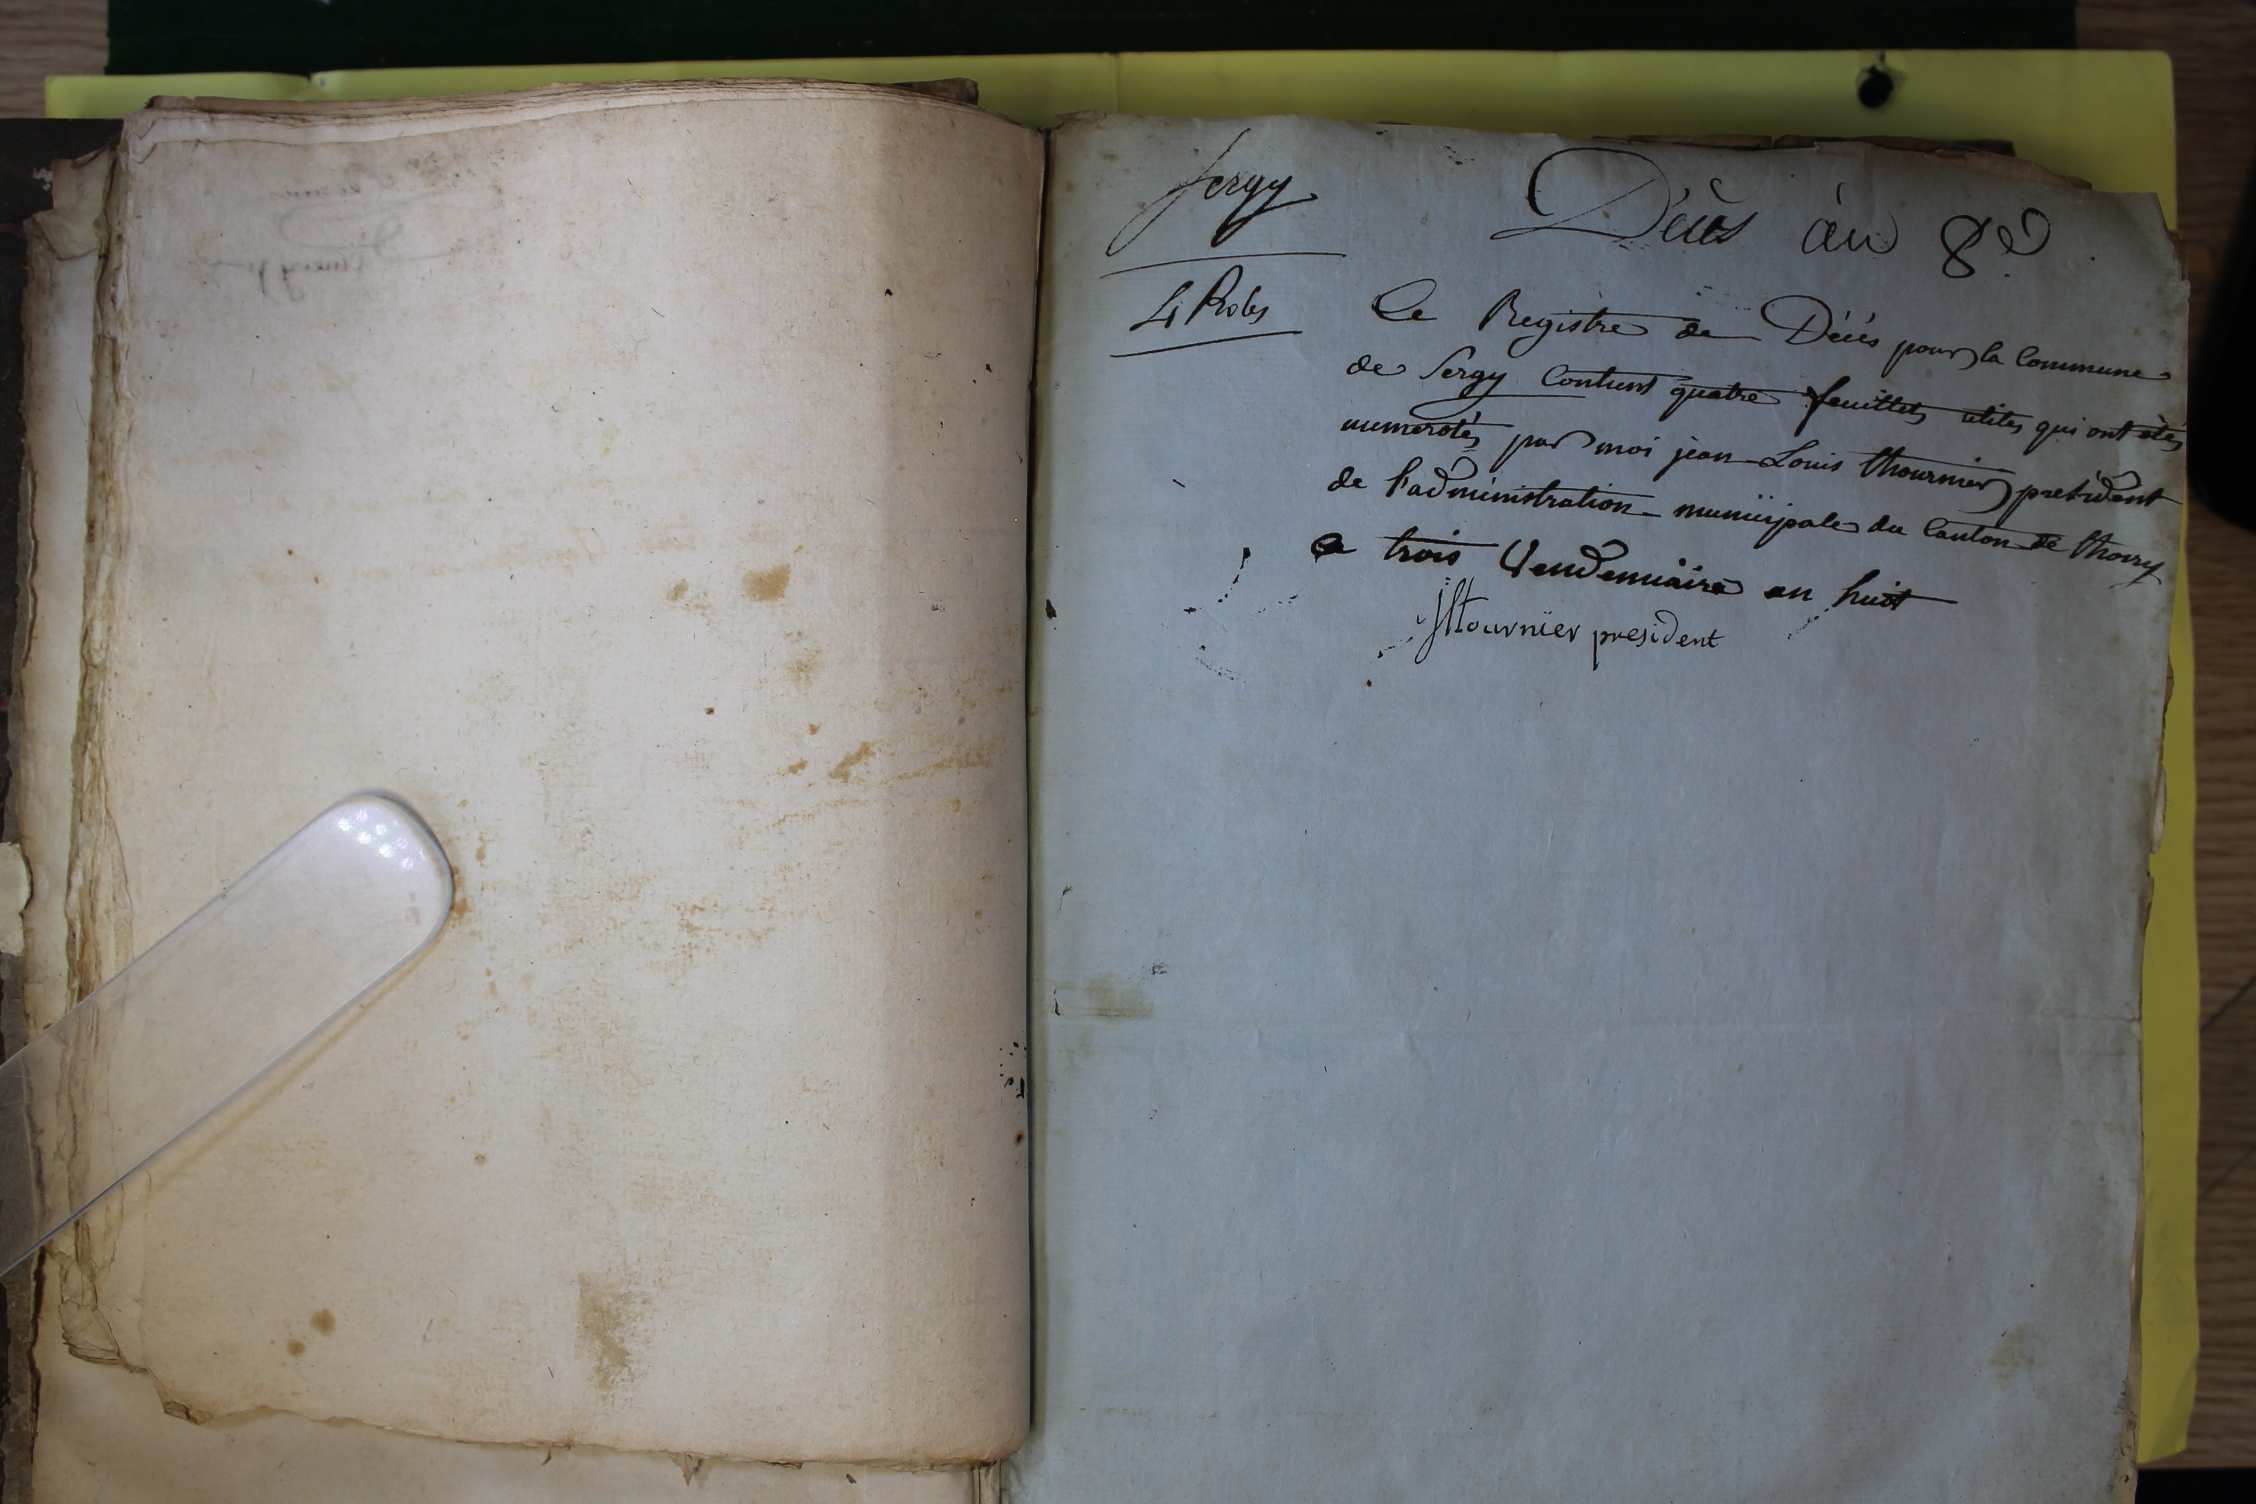 Sergy
Décès an 8e
4 Roles
Le Registre de Décés pour la Commune
de Sergy Contient quatre feuillets utiles qui ont etés
numerotés par moi jean Louis thournier president
de l'administration municipale du Canton de thoiry
Ce trois Vendemiaire an huit
JLtournier president